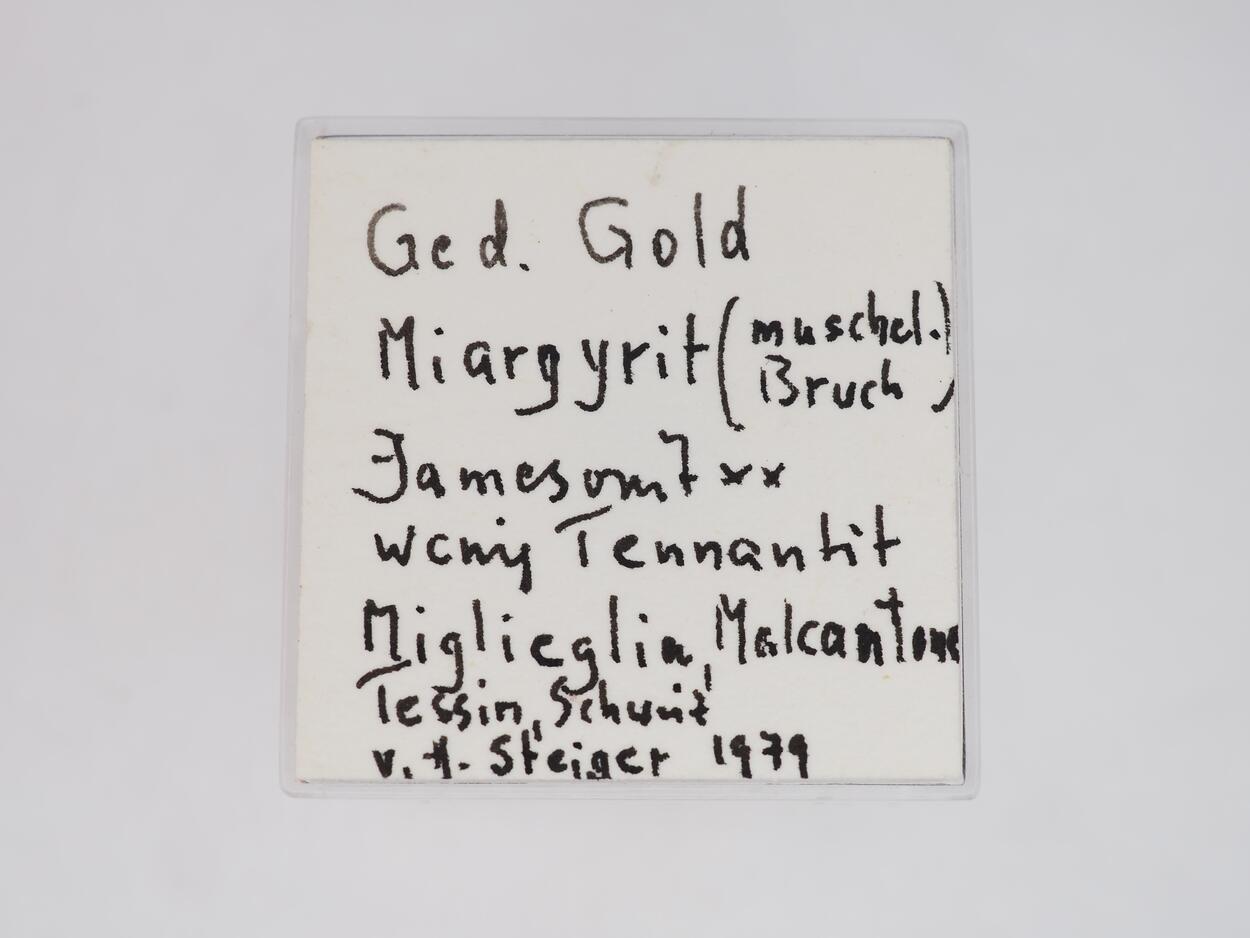 Ged. Gold
Miargyrit (muschel. Bruch)
Jamesonit xx
wenig Tennantit
Miglieglia, Malcantone
Tessin, Schweiz
v. A. Steiger 1979